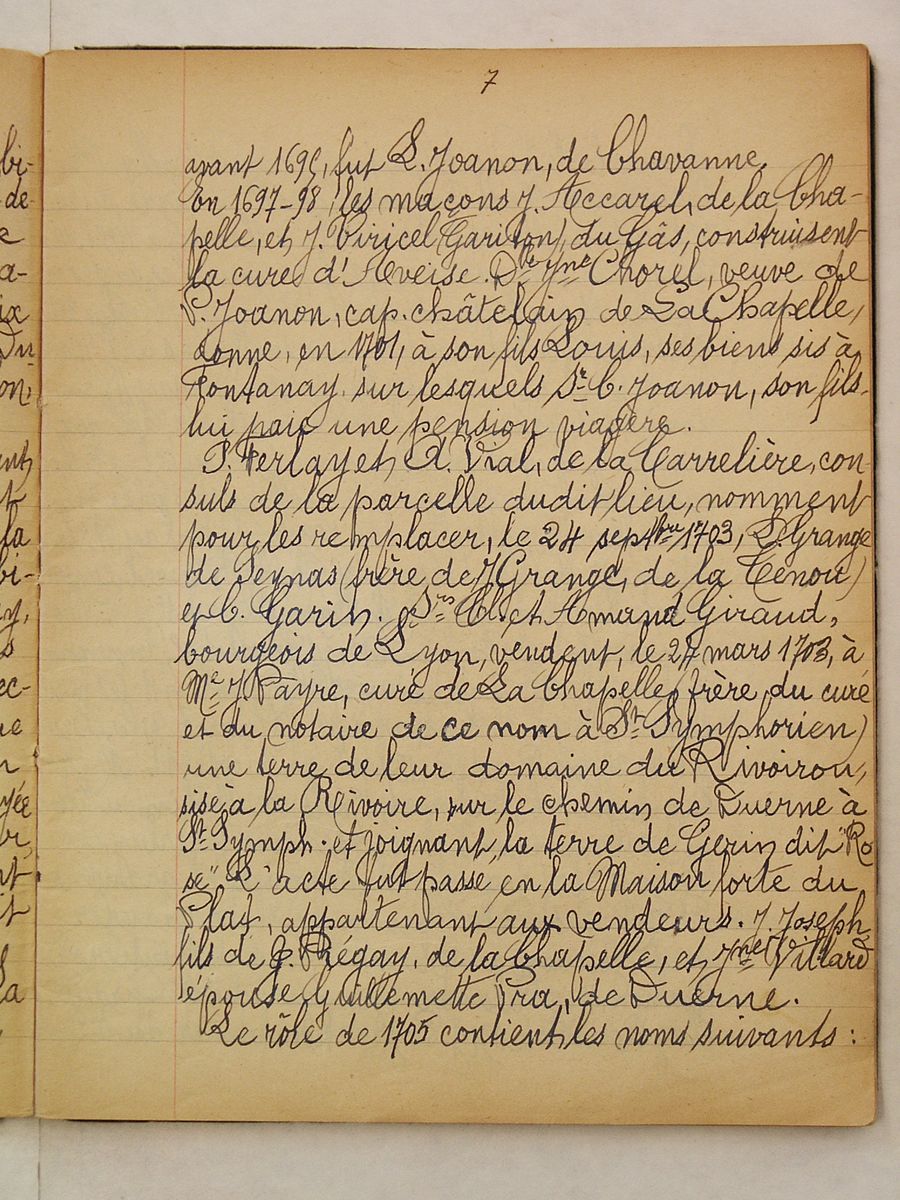 7
avant 1695, fut L. Joanon, de Chavanne.
En 1697-98, les maçons J. Accarel, de la Cha-
pelle, et J. Viricel (Gariton), du Gâs, construisent
la cure d'Aveise. De Jne Chorel, veuve de
P. Joanon, cap. châtelain de La Chapelle,
donne, en 1701, à son fils Louis, ses biens sis à
Fontanay, sur lesquels Sr C. Joanon, son fils
lui paie une pension viagère.
P. Ferlay et A. Vial, de la Carrelière, con-
suls de la parcelle dudit lieu, nomment
pour les remplacer, le 24 septbre 1703, L. Grange
de Peynas (frère de J. Grange, de la Tenou)
et C. Garin. Srs Cl. et Amand Giraud,
bourgeois de Lyon, vendent, le 27 mars 1703, à
Me J. Payre, curé de La Chapelle (frère du curé
et du notaire de ce nom à St Symphorien)
une terre de leur domaine du Rivoirou,
sise à la Rivoire, sur le chemin de Duerne à
St Symph. et joignant la terre de Gerin dit "Ro
se" L'acte fut passé en la Maison forte du
Plat, appartenant aux vendeurs. J Joseph,
fils de J. Régay, de la Chapelle, et Jnet Villard
épouse Guillemette Pra, de Duerne.
Le rôle de 1705 contient les noms suivants :